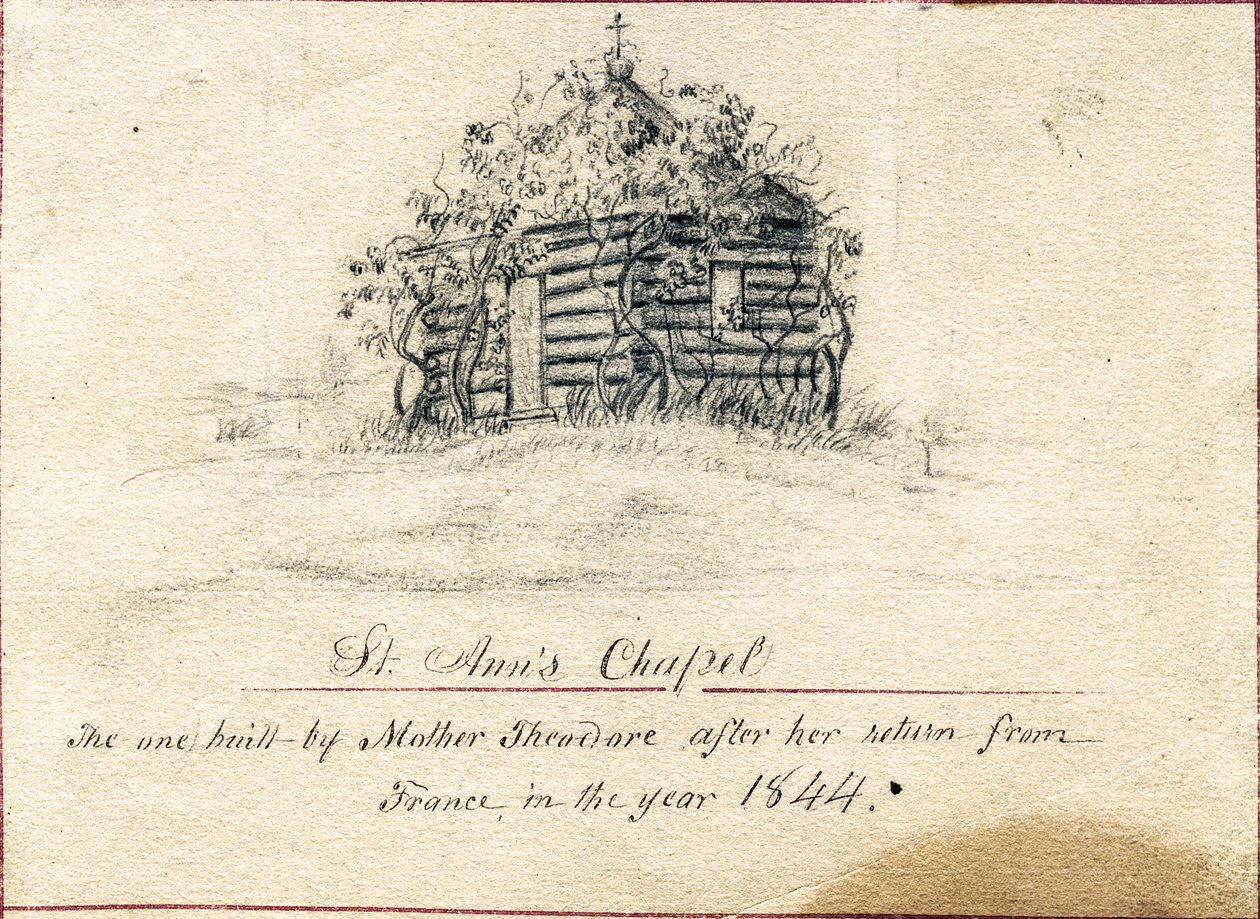 St. Ann's Chapel
The one built by Mother Theodore after her return from
France, in the year 1844.